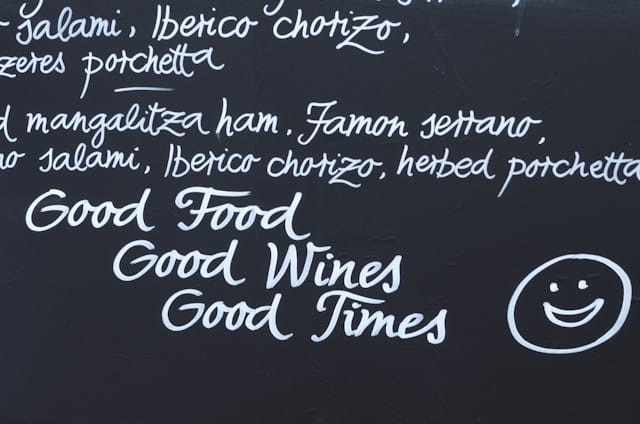 salami, Iberico chorizo,
zeres porchetta
d mangalitza ham, Jamon serrano,
no salami, Iberico chorizo, herbed porchetta
Good Food
Good Wines
Good Times